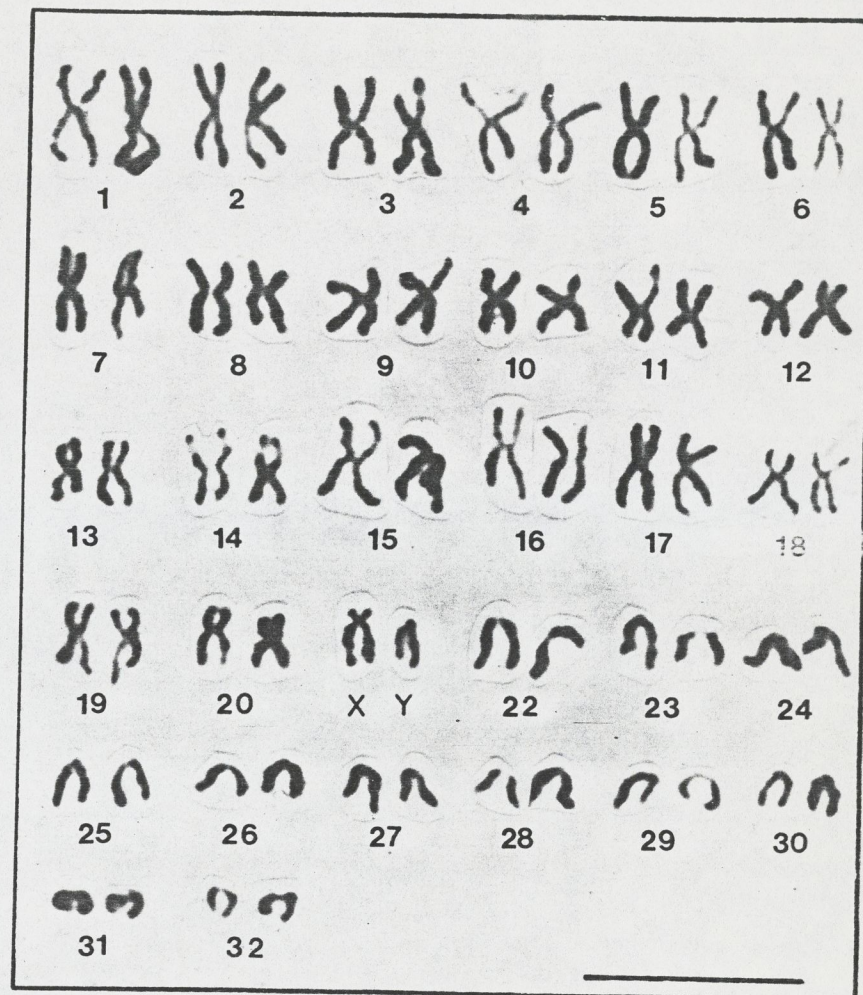 1 2 3 4 5 6
7 8 9 10 11 12
13 14 15 16 17 18
19 20 X Y 22 23 24
25 26 27 28 29 30
31 32